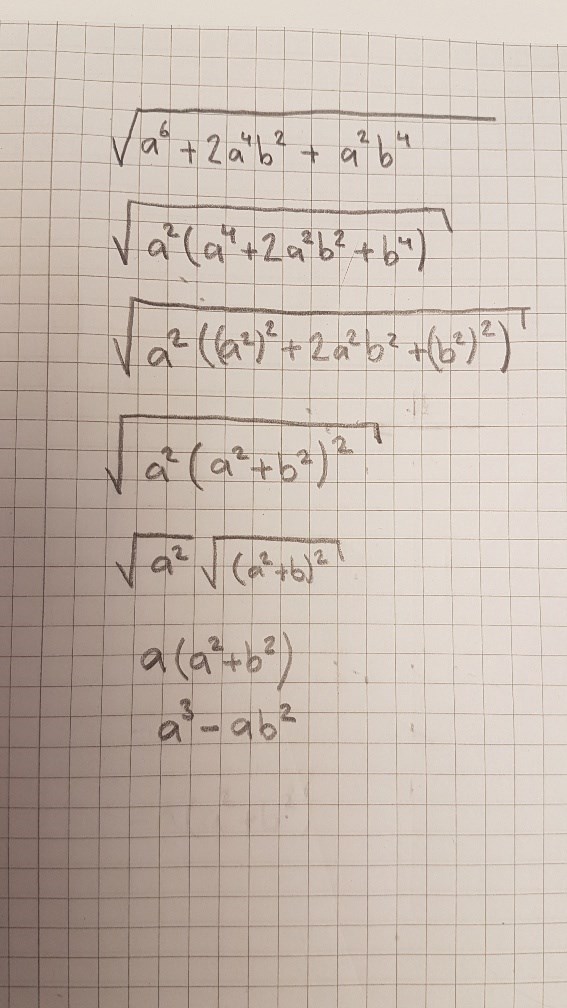 √(a⁶ + 2a⁴b² + a²b⁴)
√(a²(a⁴+2a²b²+b⁴))
√(a²((a²)²+2a²b²+(b²)²))
√(a²(a²+b²)²)
√(a²) √((a²+b)²)
a(a²+b²)
a³-ab²